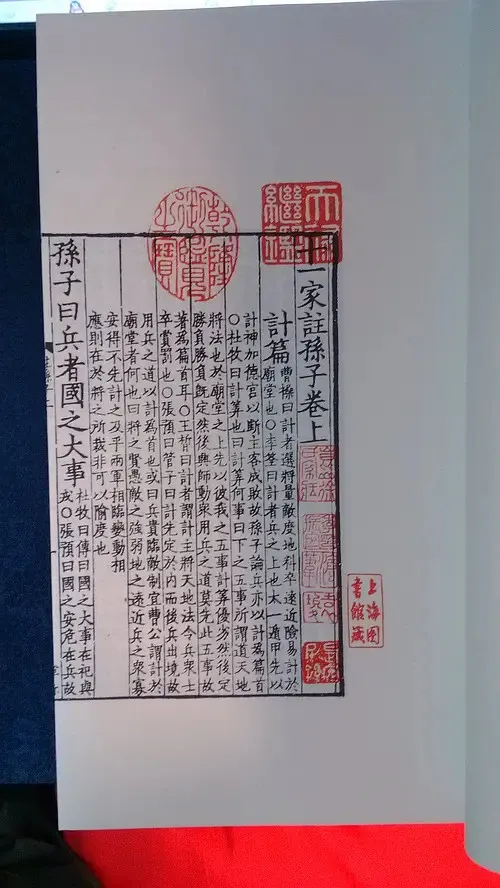 天祿繼鑑
乾隆御覽之寶
十一家註孫子卷上
計篇
曹操曰計者選將量敵度地料卒遠近險易計於
廟堂也○李筌曰計者兵之上也太一遁甲先以
計神加德宮以斷主客成敗故孫子論兵亦以計為篇首
○杜牧曰計算也曰計算何事曰下之五事所謂道天地
將法也於廟堂之上先以彼我之五事計算優劣然後定
勝負勝負既定然後興師動衆用兵之道莫先此五事故
著為篇首耳○王晳曰計者謂計主將天地法令兵衆士
卒賞罰也○張預曰管子曰計先定於內而後兵出境故
用兵之道以計為首也或曰兵貴臨敵制宜曹公謂計於
廟堂者何也曰將之賢愚敵之強弱地之遠近兵之衆寡
安得不先計之及乎兩軍相臨變動相
應則在於將之所裁非可以隃度也
孫子曰兵者國之大事
杜牧曰傳曰國之大事在祀與
戎○張預曰國之安危在兵故
上海圖
書館藏